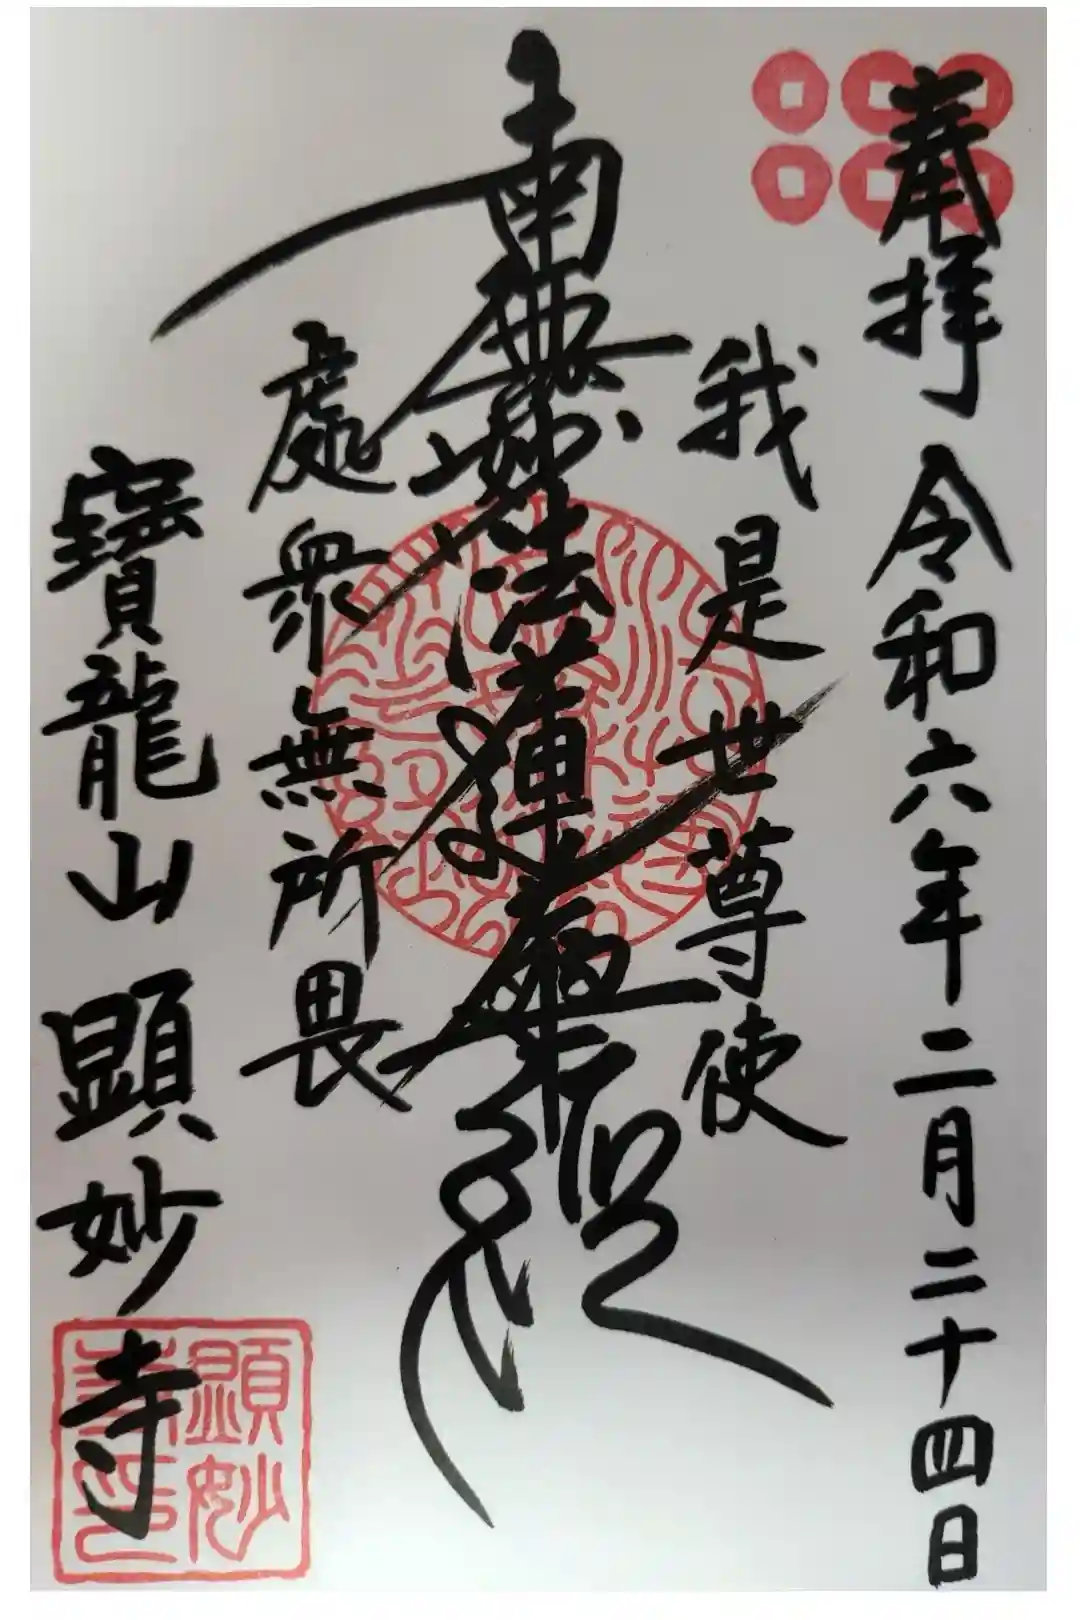 奉拝 令和六年二月二十四日
我是世尊使
南無妙法蓮華経
處衆無所畏
寶龍山 顕妙寺
顕妙
寺印